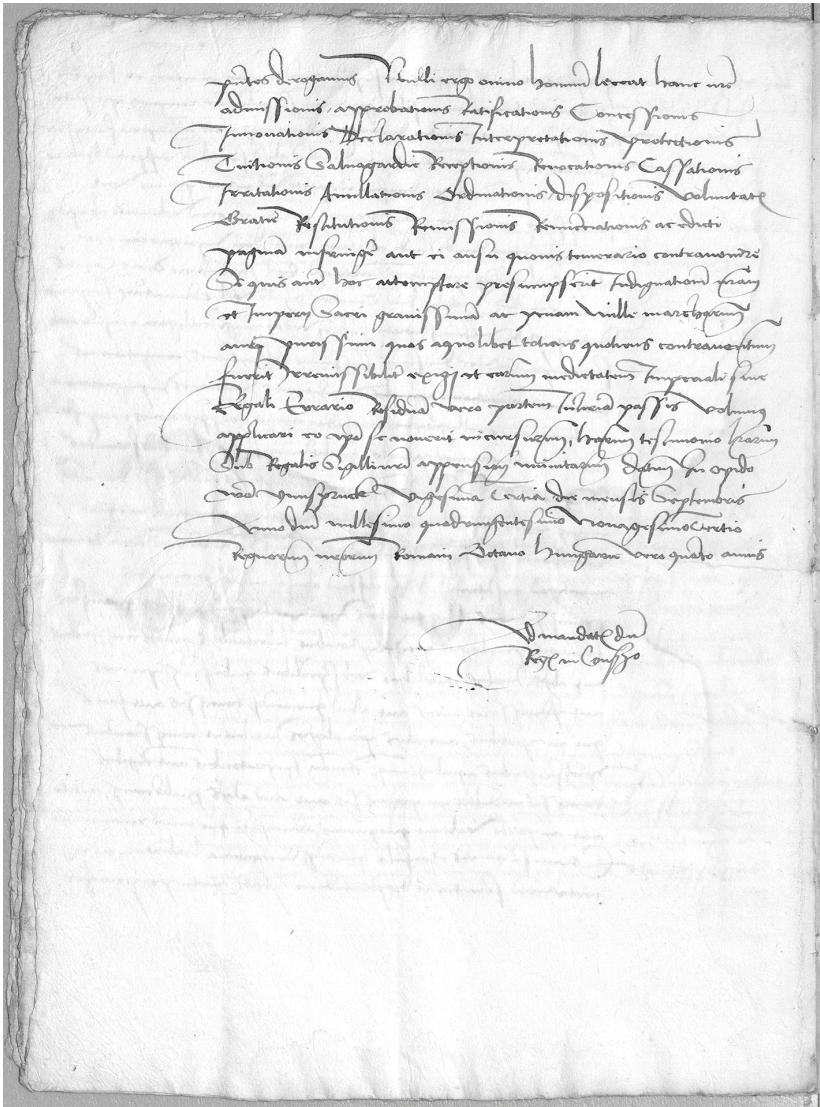 pntes derogamus Nulli ergo omino hominu liceat hanc nre
admissionis, approbationis Ratificationis Concessionis
Innovationis Declarationis Interpretationis protectionis
Tuitionis Salvagardie Receptionis Revocationis Cassationis
Irritationis Anullationis Ordinationis, dispositionis Voluntatis
Gratie Restitutionis Remissionis Renuctiationis ac edicti
pagina infringe aut ei ausu quovis temerario contravenire
Si quis aut hoc attemptare presumpserit Indignatione nram
et Impery Sacri gravissima ac penam mille marcharum
auri purissimi quas a quolibet totiens quotiens contraventum
fuerit Irremissibilit exigi et earum medietatem Imperiali sive
Regali Erario Residua vero partem Iniuria passis volumus
applicari eo ipso se noverit incursurum, harum testimonio lrarum
Sub Regalis Sigilli nri appensione munitarum datum In opido
nro Ynnspruck Vigesima Tertia die mensis Septembris
Anno dni millesimo quadringentesimo Nonagesimo Tertio
Regnorum nrorum Romani Octavo hungarie vero quarto annis
Ad mandatu dni
Regis in Consilio